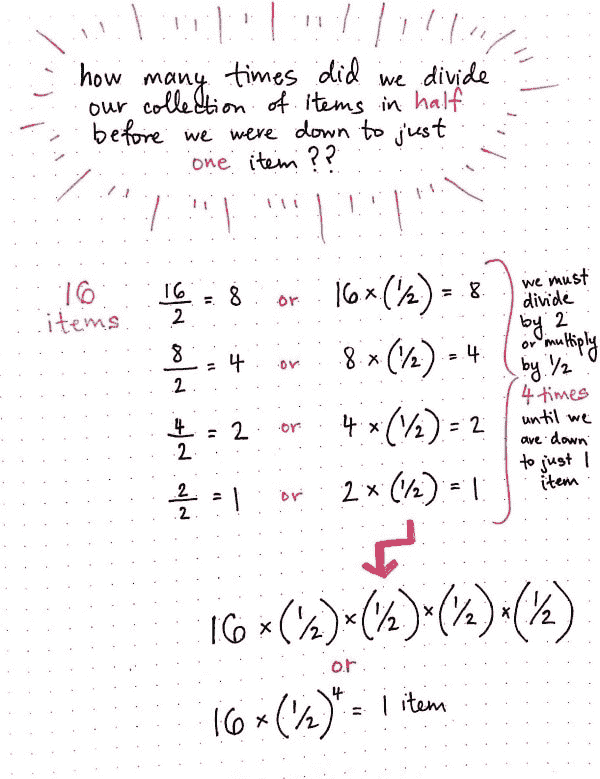 how many times did we divide
our collection of items in half
before we were down to just
one item ??
16 items
16/2 = 8 or 16 × (1/2) = 8
8/2 = 4 or 8 × (1/2) = 4
4/2 = 2 or 4 × (1/2) = 2
2/2 = 1 or 2 × (1/2) = 1
we must
divide
by 2
or multiply
by 1/2
4 times
until we
are down
to just 1
item
16 × (1/2) × (1/2) × (1/2) × (1/2)
or
16 × (1/2)⁴ = 1 item